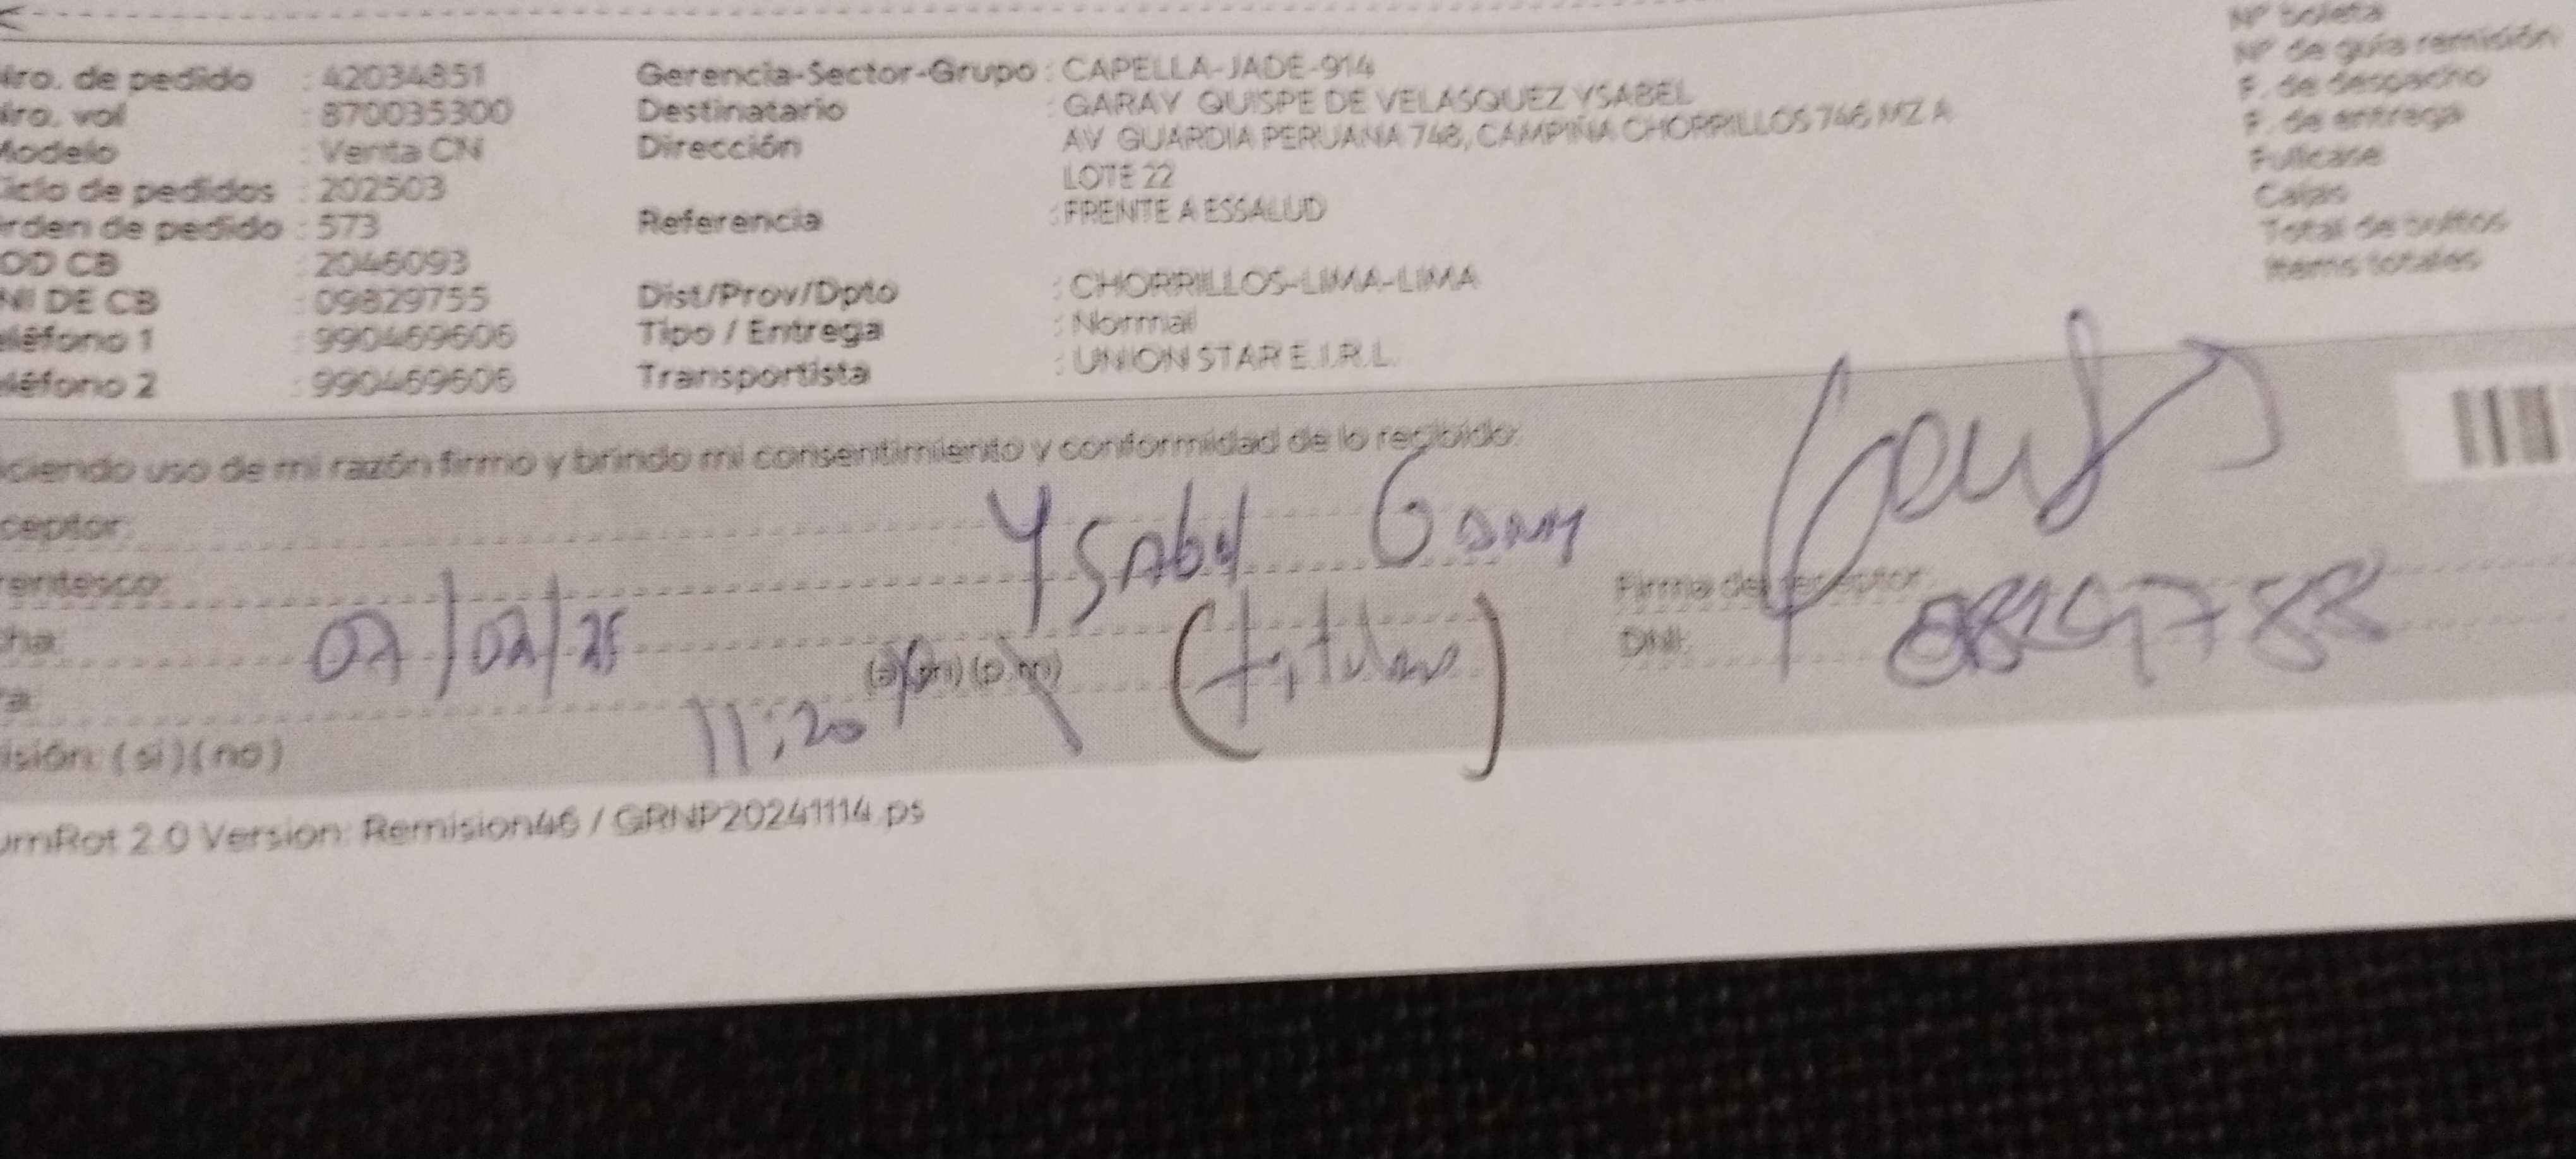 Nro. de pedido : 42034851
Nro. vol : 870035300
Modelo : Venta CN
Ciclo de pedidos : 202503
Orden de pedido : 573
COD CB : 2046093
DNI DE CB : 09829755
Teléfono 1 : 990469606
Teléfono 2 : 990469606
Gerencia-Sector-Grupo : CAPELLA-JADE-914
Destinatario : GARAY QUISPE DE VELASQUEZ YSABEL
Dirección : AV GUARDIA PERUANA 746, CAMPIÑA CHORRILLOS 746 MZ A
LOTE 22
Referencia : FRENTE A ESSALUD
Dist/Prov/Dpto : CHORRILLOS-LIMA-LIMA
Tipo / Entrega : Normal
Transportista : UNION STAR E.I.R.L.
Nº boleta
Nº de guía remisión
F. de despacho
F. de entrega
Fullcase
Cajas
Total de bultos
Items totales
ciendo uso de mi razón firmo y brindo mi consentimiento y conformidad de lo recibido:
ceptor: Ysabel Garay
rentesco: (titular)
cha: 07/02/25
ra: 11:20 (a.m) (p.m)
isión: (si) (no)
Firma del receptor:
DNI:
umRot 2.0 Version: Remision46 / GRNP20241114.ps